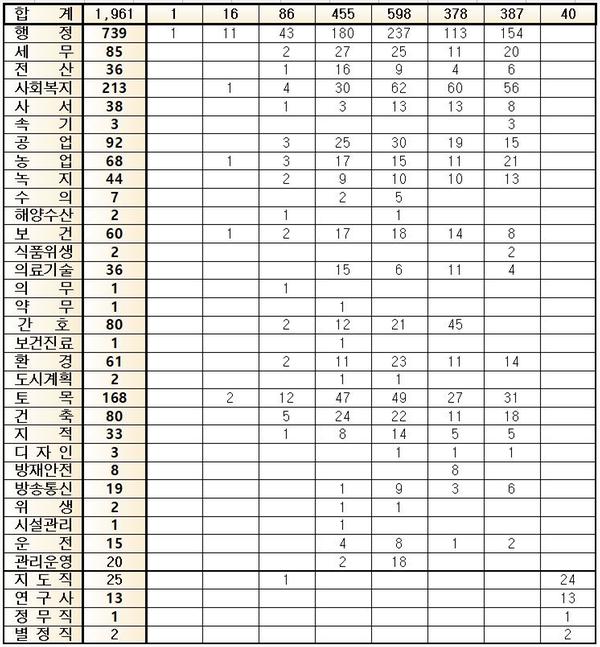 합 계 1,961 1 16 86 455 598 378 387 40
행 정 739 1 11 43 180 237 113 154
세 무 85 2 27 25 11 20
전 산 36 1 16 9 4 6
사회복지 213 1 4 30 62 60 56
사 서 38 1 3 13 13 8
속 기 3 3
공 업 92 3 25 30 19 15
농 업 68 1 3 17 15 11 21
녹 지 44 2 9 10 10 13
수 의 7 2 5
해양수산 2 1 1
보 건 60 1 2 17 18 14 8
식품위생 2 2
의료기술 36 15 6 11 4
의 무 1 1
약 무 1 1
간 호 80 2 12 21 45
보건진료 1 1
환 경 61 2 11 23 11 14
도시계획 2 1 1
토 목 168 2 12 47 49 27 31
건 축 80 5 24 22 11 18
지 적 33 1 8 14 5 5
디 자 인 3 1 1 1
방재안전 8 8
방송통신 19 1 9 3 6
위 생 2 1 1
시설관리 1 1
운 전 15 4 8 1 2
관리운영 20 2 18
지 도 직 25 1 24
연 구 사 13 13
정 무 직 1 1
별 정 직 2 2